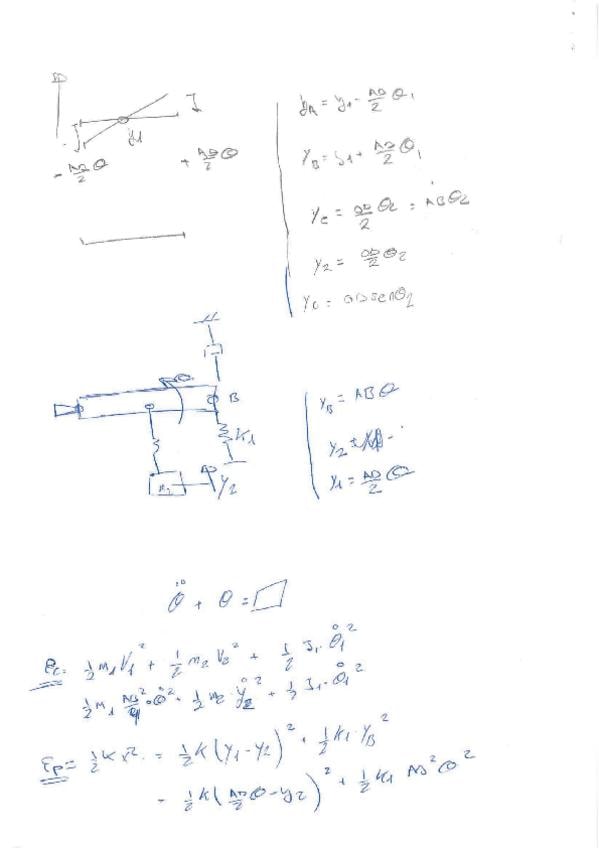 y_A = y_1 - AB/2 θ_1
y_1
- AB/2 θ
+ AB/2 θ
y_B = y_1 + AB/2 θ_1
y_C = OD/2 θ_2 = AB θ_2
y_2 = OD/2 θ_2
y_C = OD sen θ_2
B
K_1
y_2
y_B = AB θ
y_2 =
y_1 = AB/2 θ
θ̈ + θ =
Ec = 1/2 m_1 V_1² + 1/2 m_2 V_2² + 1/2 J_1 · θ̇_1²
1/2 m_1 AB²/4 · θ̇² + 1/2 m_2 · ẏ_2² + 1/2 J_1 · θ̇_1²
Ep = 1/2 K x² = 1/2 K (y_1 - y_2)² + 1/2 K_1 · y_B²
= 1/2 K (AB/2 θ - y_2)² + 1/2 K_1 AB² θ²